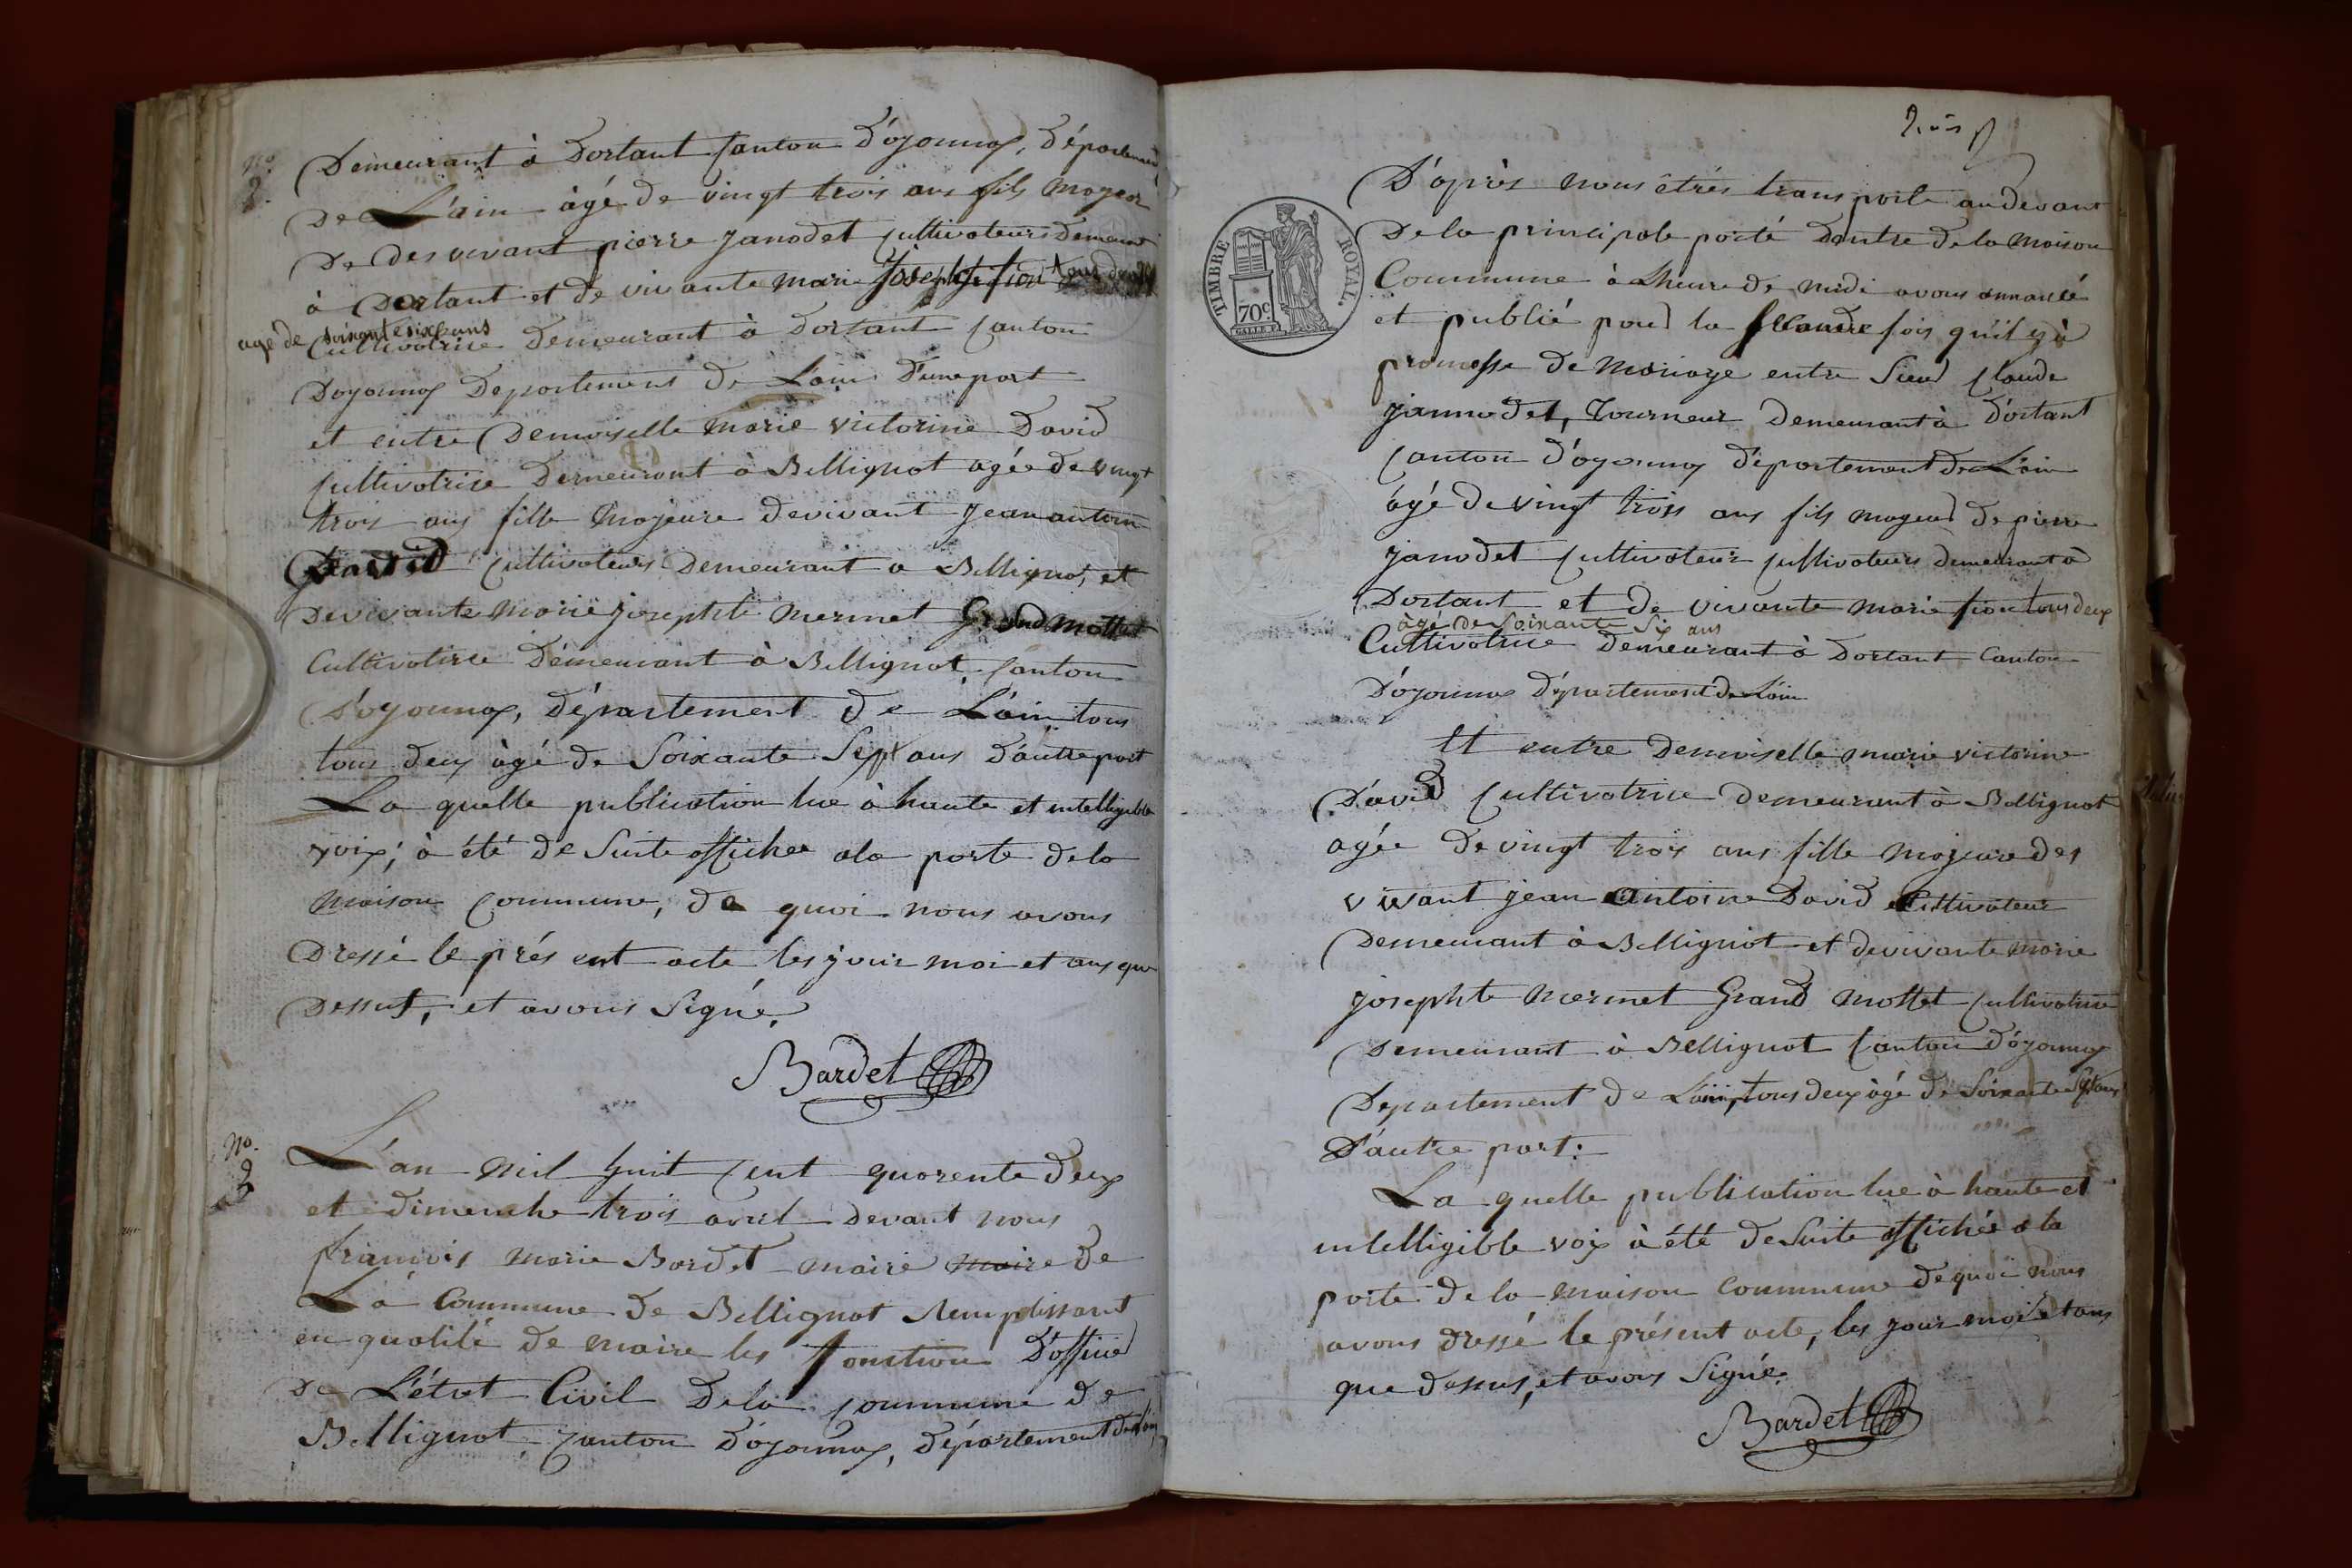 No.
2.
Demeurant à Dortant Canton D'oyonnax, Département
De L'ain âgé de vingt trois ans fils Mojeor
De Des vivant pierre janodet Cultivateurs Demeurant
à Dortant et de vivante marie Josephte fion tous deux
agé de soixante six ans
Cultivatrice Demeurant à Dortant Canton
Doyonnax Departement De L'ain D'une part
et entre Demoiselle Marie Victorine David
Cultivatrice Demeurant à Bellignat agée de vingt
trois ans fille Majeure de vivant Jean antoine
David Cultivateurs Demeurant a Bellignat, et
De vivante Marie josephte Mermet Grand Mottet
Cultivatirce Démeurant à Bellignat, Canton
D'oyonnax, Département De L'ain tous
tous deux âgé de Soixante Sept ans D'autre part
La quelle publication lue à haute et intelligible
voix; à été de Suite affichee ala porte de la
Maison Commune, de quoi nous avons
Dressé le prés ent acte les jour moi et ans que
Dessus, et avons Signé,
Bardet
No.
3
L'an Mil huit Cent quarente deux
et dimenche trois avril devant nous
françois Marie Bardet maire maire de
La Commune de Bellignat Remplissant
en qualité de maire les fonction D'officier
De L'état Civil De la Commune de
Bellignat, Canton D'oyonnax, Département de L'ain
Trois
TIMBRE ROYAL.
70c.
D'après nous êtrés trans porté au devant
De la principale porté Dentre de la Maison
Commune à Lheure de midi avons annoncé
et publié pour la seconde fois qu'il y à
promesse de Mariage entre Sieur Claude
jannodet, Tourneur Demeurant à Dortant
Canton D'oyonnax Département de L'ain
âgé De vingt trois ans fils Majeur De pierre
janodet Cultivateur Cultivateurs demeurant à
Dortant et de vivante Marie fion tous deux
âgé de Soixante Six ans
Cultivatrice Demeurant à Dortant Canton
D'oyonnax Département de L'ain
Et entre Demoiselle marie victorine
David Cultivatrice Demeurant à Bellignat
agée De vingt trois ans fille Majeure des
vivant jean antoine David Cultivateur
Demeurant à Bellignat et de vivante Marie
josephte Mermet Grand Mottet Cultivatrice
Demeurant à Bellignat Canton D'oyonnax
Departement De L'ain, tous deux âgé de Soixante Sept ans
D'autre part:
La quelle publication lue à haute et
intelligible voix à été De Suite affichée a la
porte de la Maison Commune de quoi nous
avons dressé le présent acte, les jour moi et ans
que dessus, et avons Signé.
Bardet